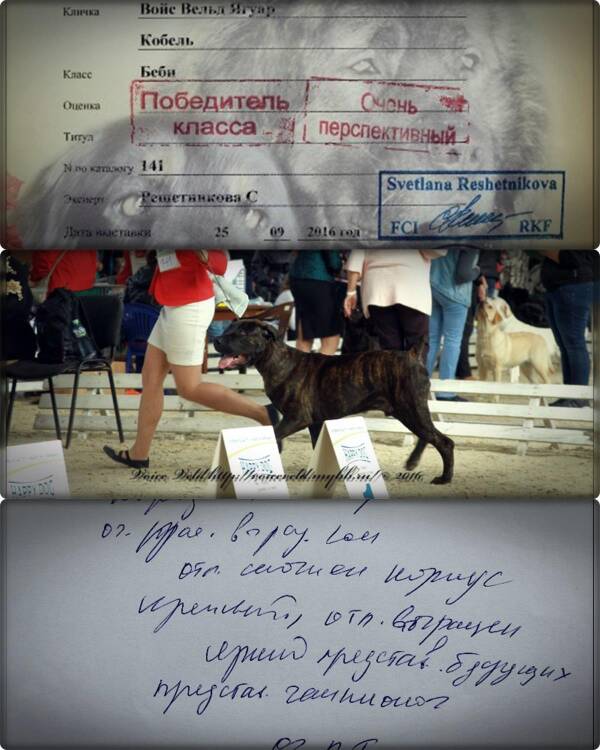 Кличка Войс Вельд Ягуар
Кобель
Класс Беби
Оценка
Победитель класса
Очень перспективный
Титул
N по каталогу 141
Эксперт Решетникова С
Svetlana Reshetnikova
FCI RKF
Дата выставки 25 09 2016 год
Voice Veld/http://voiceveld.mybb.ru/ © 2016
HAPPY DOG
HAPPY DOG
ог. крас. выраж. гол
отл. сложен корпус
крепкий, отл. выращен
яркий представ. будущих
представ. чемпионов